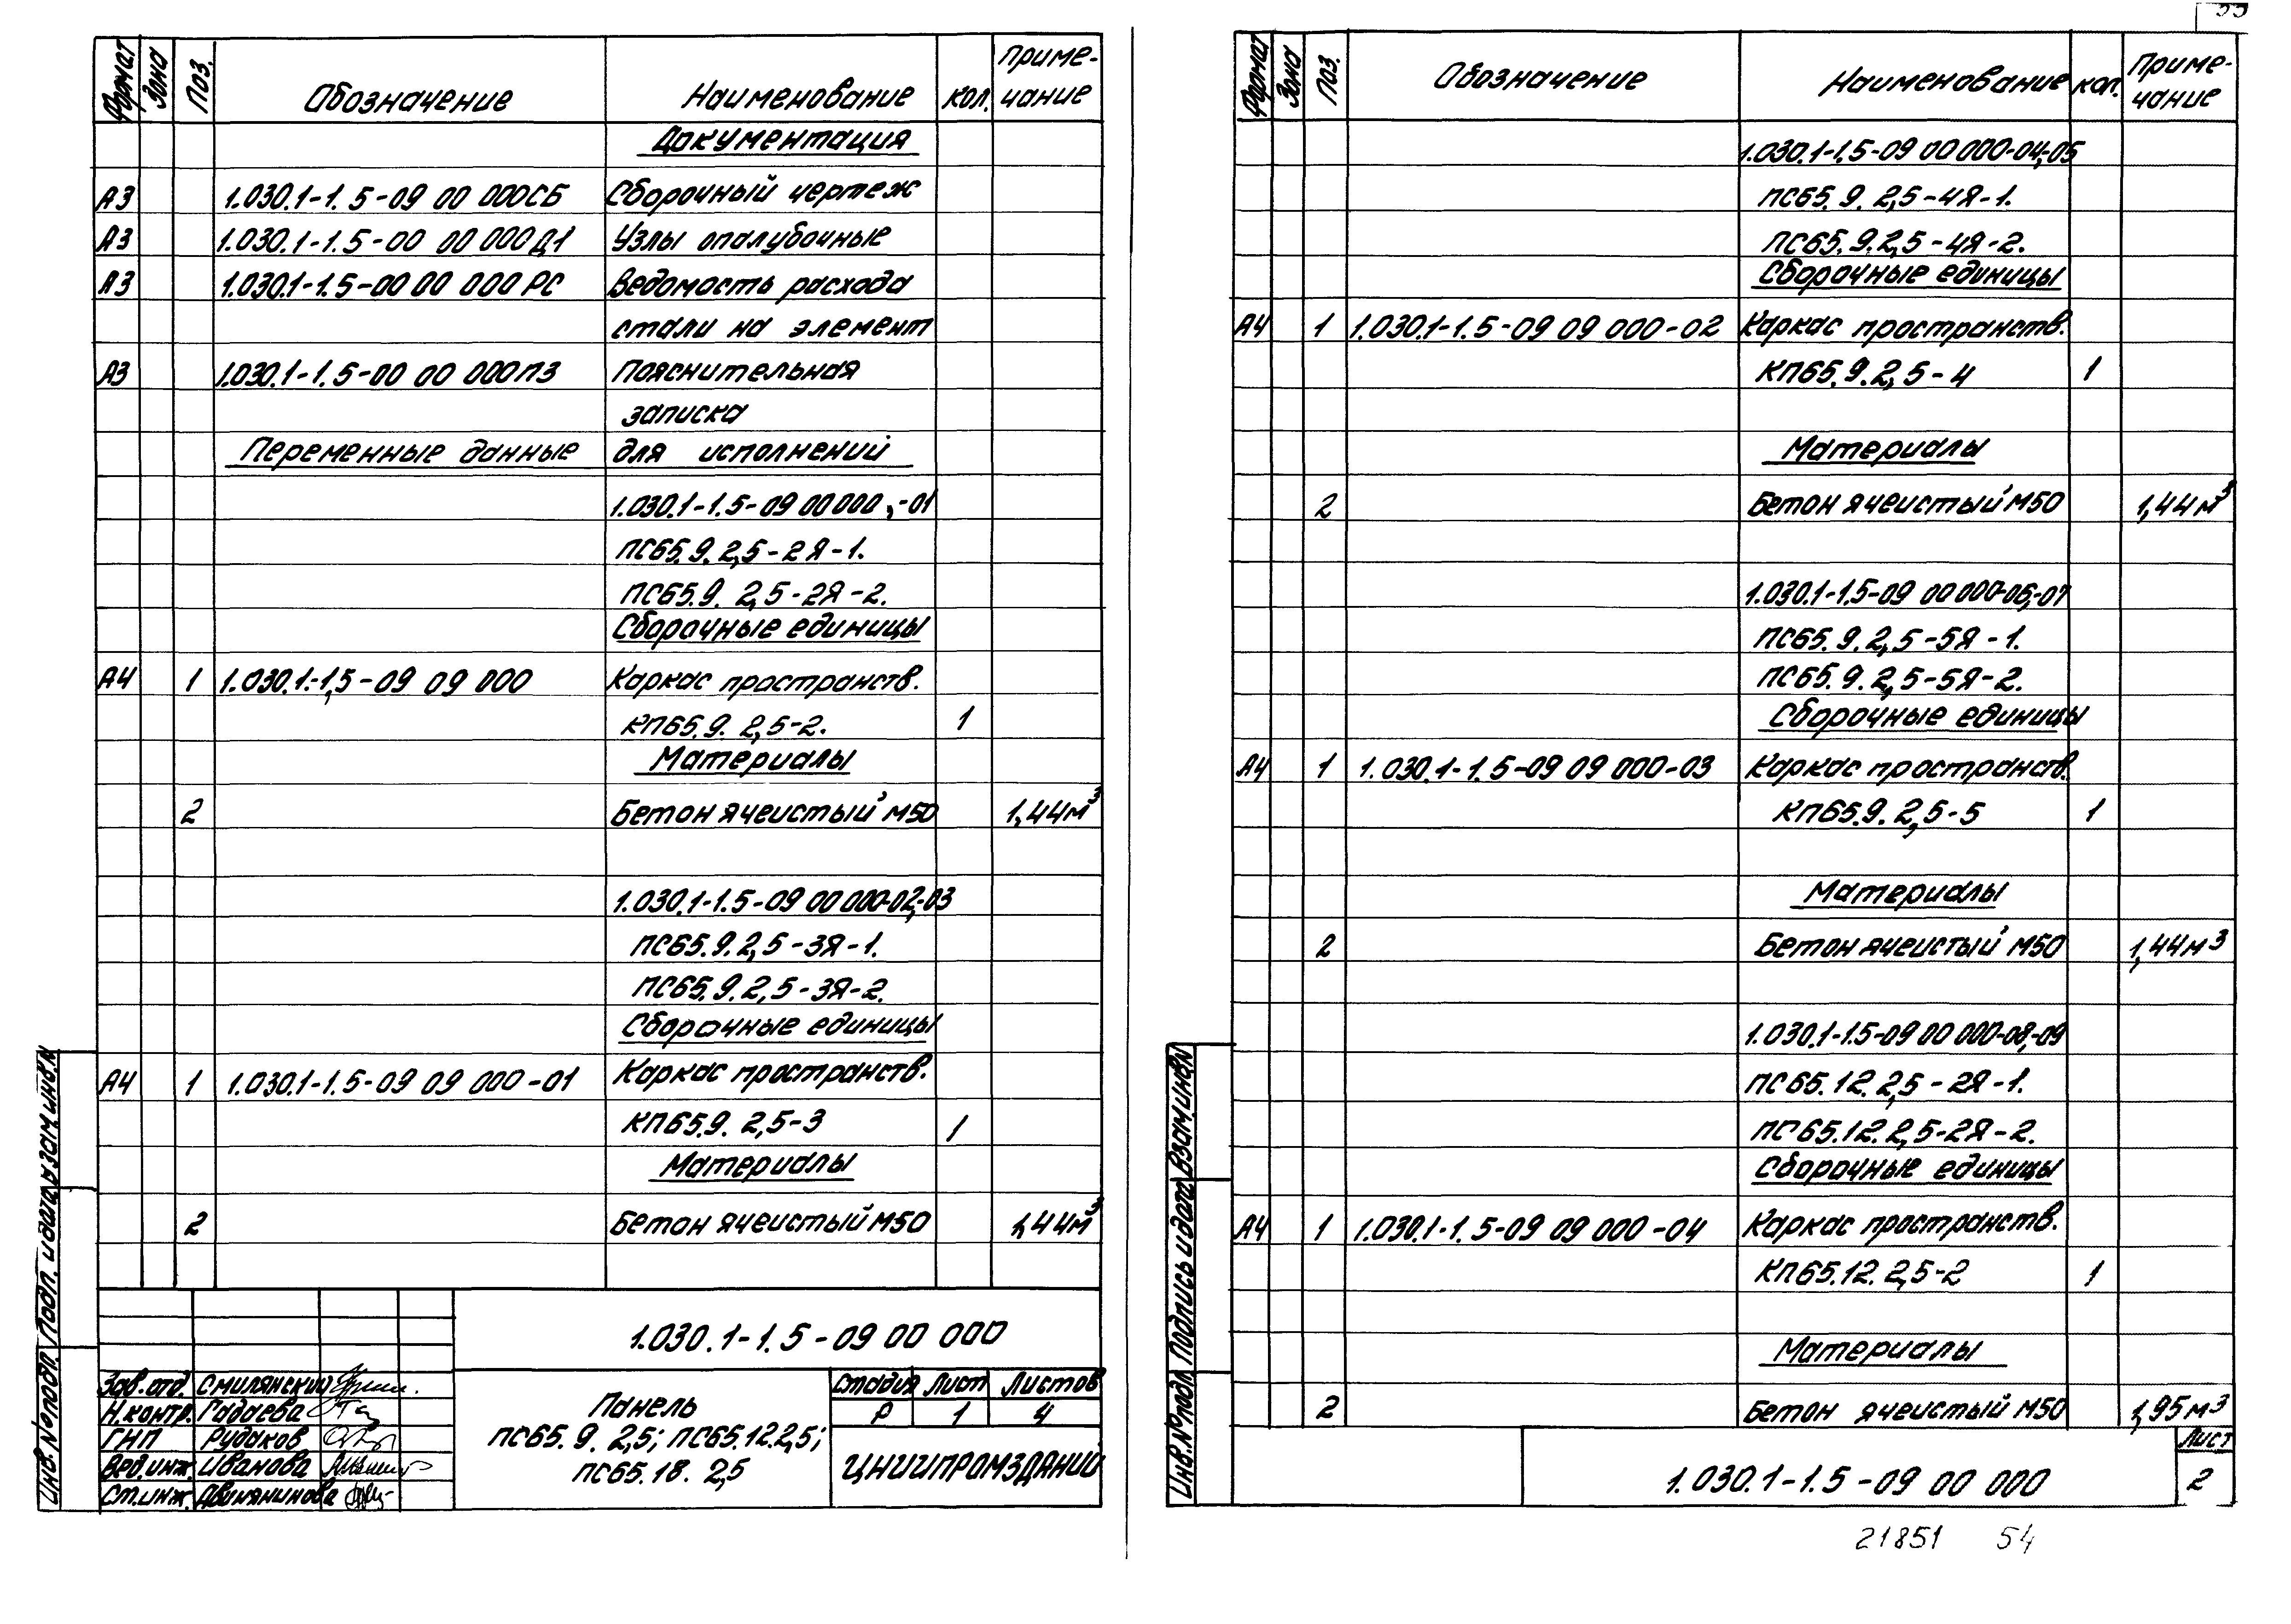 Формат Зона Поз. Обозначение Наименование Кол. Приме-
чание
Документация
А3 1.030.1-1.5-09 00 000СБ Сборочный чертеж
А3 1.030.1-1.5-00 00 000Д1 Узлы опалубочные
А3 1.030.1-1.5-00 00 000РС Ведомость расхода
стали на элемент
А3 1.030.1-1.5-00 00 000ПЗ Пояснительная
записка
Переменные данные для исполнений
1.030.1-1.5-09 00 000,-01
ПС65.9.2,5-2Я-1.
ПС65.9.2,5-2Я-2.
Сборочные единицы
А4 1 1.030.1-1,5-09 09 000 Каркас пространств.
КП65.9.2,5-2. 1
Материалы
2 Бетон ячеистый М50 1,44м³
1.030.1-1.5-09 00 000-02,-03
ПС65.9.2,5-3Я-1.
ПС65.9.2,5-3Я-2.
Сборочные единицы
А4 1 1.030.1-1.5-09 09 000-01 Каркас пространств.
КП65.9.2,5-3 1
Материалы
2 Бетон ячеистый М50 1,44м³
1.030.1-1.5-09 00 000
Зав.отд. Смилянский
Н.контр. Гадаева
ГИП Рудаков
Вед.инж. Иванова
Ст.инж. Двинянинова
Панель
ПС65.9.2,5; ПС65.12.2,5;
ПС65.18.2,5
Стадия Лист Листов
Р 1 4
ЦНИИПРОМЗДАНИЙ
Инв.№подл. Подп. и дата Взам.инв.№
Формат Зона Поз. Обозначение Наименование Кол. Приме-
чание
1.030.1-1.5-09 00 000-04,-05
ПС65.9.2,5-4Я-1.
ПС65.9.2,5-4Я-2.
Сборочные единицы
А4 1 1.030.1-1.5-09 09 000-02 Каркас пространств.
КП65.9.2,5-4 1
Материалы
2 Бетон ячеистый М50 1,44м³
1.030.1-1.5-09 00 000-06,-07
ПС65.9.2,5-5Я-1.
ПС65.9.2,5-5Я-2.
Сборочные единицы
А4 1 1.030.1-1.5-09 09 000-03 Каркас пространств.
КП65.9.2,5-5 1
Материалы
2 Бетон ячеистый М50 1,44м³
1.030.1-1.5-09 00 000-08,-09
ПС65.12.2,5-2Я-1.
ПС65.12.2,5-2Я-2.
Сборочные единицы
А4 1 1.030.1-1.5-09 09 000-04 Каркас пространств.
КП65.12.2,5-2 1
Материалы
2 Бетон ячеистый М50 1,95м³
1.030.1-1.5-09 00 000
Лист
2
Инв.№подл. Подпись и дата Взам.инв.№
21851 54